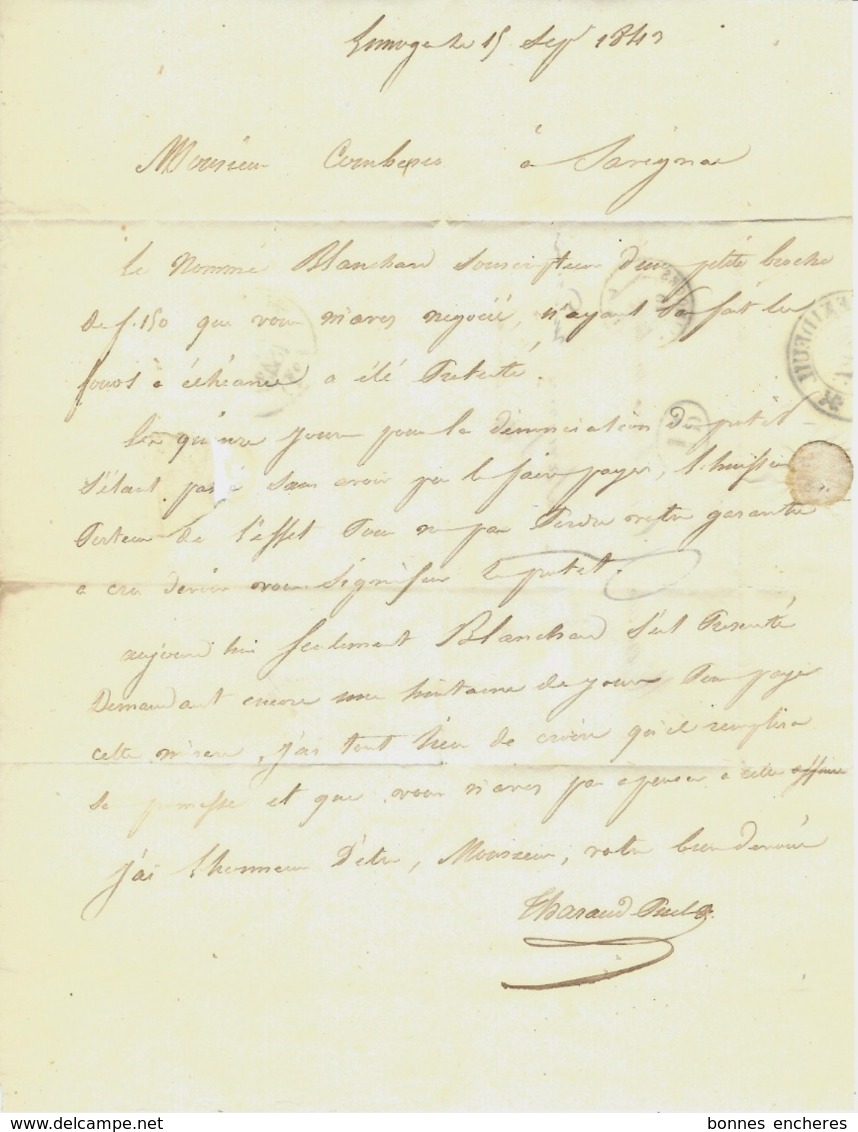 Limoges le 15 Sepr 1843
Monsieur Combes à Savignac
Le nommé Blanchard souscripteur d'une petite broche
de f. 150 que vous m'avez négocié, n'ayant pas fait les
fonds à échéance a été Protesté.
Les quinze jours pour la dénonciation du protêt
s'étant passé sans avoir pu le faire payer, l'huissier
Porteur de l'effet Pour ne pas Perdre votre garantie
a cru devoir vous Signifier le protêt.
aujourd'hui seulement Blanchard s'est Présenté
Demandant encore une huitaine de jours Pour payer
cette misère, j'ai tout lieu de croire qu'il remplira
sa promesse et que vous n'avez pas à penser à cette affaire
J'ai l'honneur D'être, Monsieur, votre bien dévoué
Tharaud
EXIDEUIL
bonnes encheres